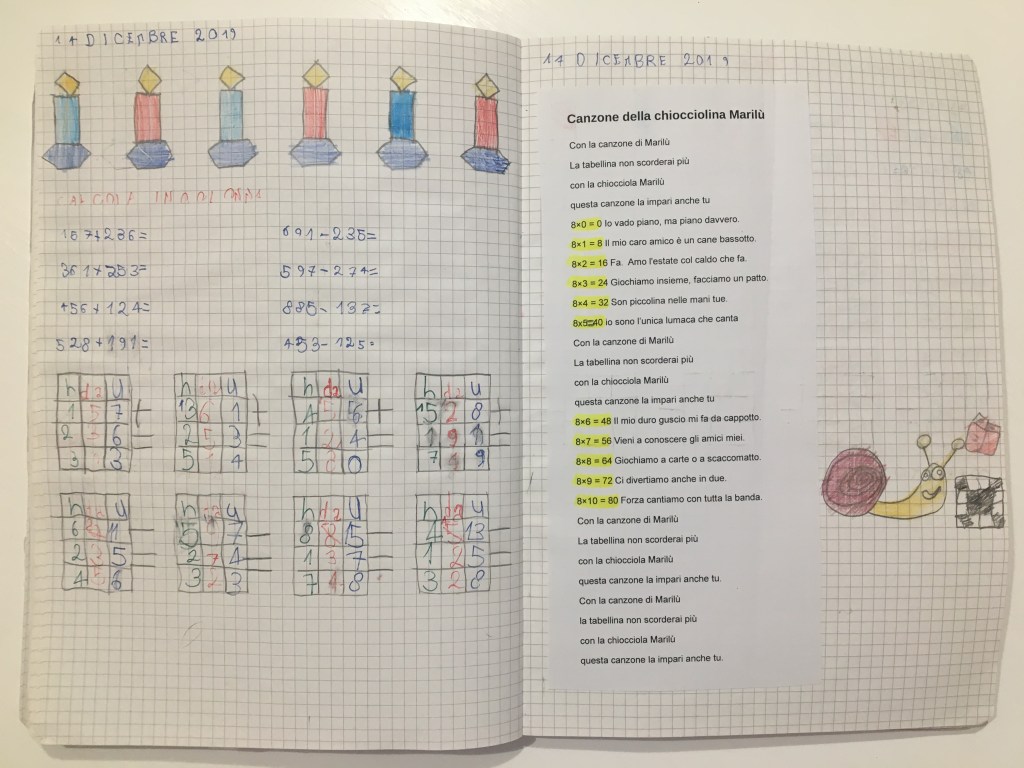 14 DICEMBRE 2019
CALCOLI IN COLONNA
157+236= 691-235=
361+253= 597-274=
456+124= 885-137=
528+191= 453-125=
h da u
1 5 7 +
2 3 6 =
3 3
h da u
13 6 1 +
2 5 3 =
5 1 4
h da u
4 5 6 +
1 2 4 =
5 8 0
h da u
15 2 8 +
1 9 1 =
7 1 9
h da u
6 11 -
2 3 5 =
4 5 6
h da u
5 7 -
2 7 4 =
3 2 3
h da u
8 8 15 -
1 3 7 =
7 4 8
h da u
4 5 13 -
1 2 5 =
3 2 8
14 DICEMBRE 2019
Canzone della chiocciolina Marilù
Con la canzone di Marilù
La tabellina non scorderai più
con la chiocciola Marilù
questa canzone la impari anche tu
8×0 = 0 Io vado piano, ma piano davvero.
8×1 = 8 Il mio caro amico è un cane bassotto.
8×2 = 16 Fa. Amo l'estate col caldo che fa.
8×3 = 24 Giochiamo insieme, facciamo un patto.
8×4 = 32 Son piccolina nelle mani tue.
8x5=40 io sono l'unica lumaca che canta
Con la canzone di Marilù
La tabellina non scorderai più
con la chiocciola Marilù
questa canzone la impari anche tu
8×6 = 48 Il mio duro guscio mi fa da cappotto.
8×7 = 56 Vieni a conoscere gli amici miei.
8×8 = 64 Giochiamo a carte o a scaccomatto.
8×9 = 72 Ci divertiamo anche in due.
8×10 = 80 Forza cantiamo con tutta la banda.
Con la canzone di Marilù
La tabellina non scorderai più
con la chiocciola Marilù
questa canzone la impari anche tu.
Con la canzone di Marilù
la tabellina non scorderai più
con la chiocciola Marilù
questa canzone la impari anche tu.